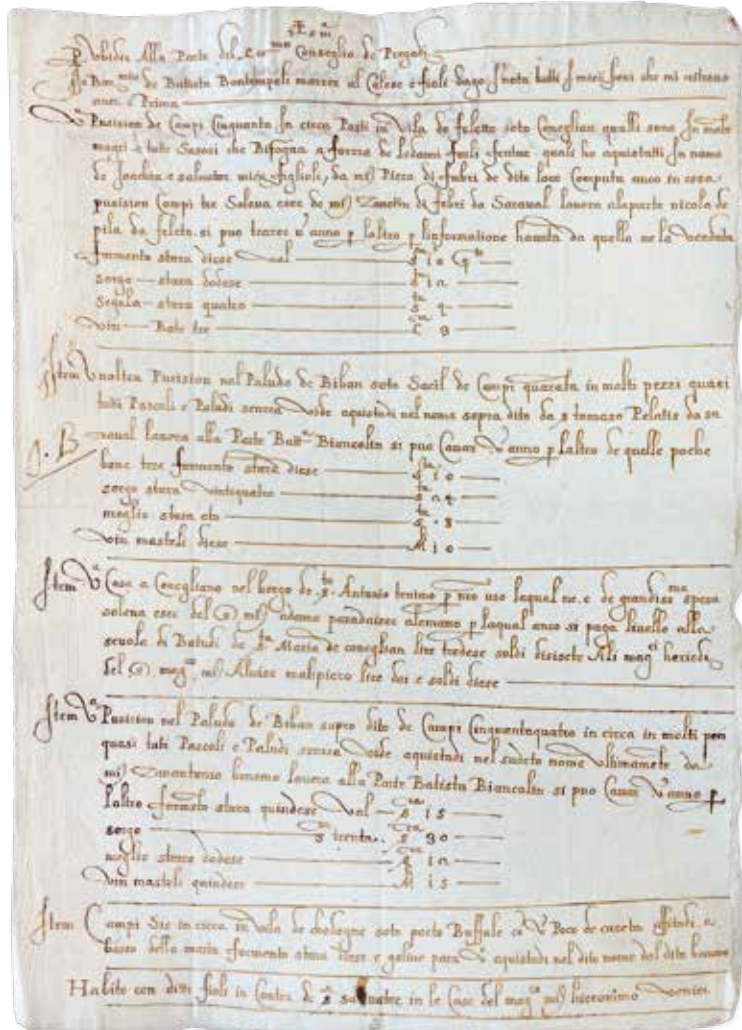 Ubidir Alla Parte del Conseglio de Pregadi
de Batista Bontempeli marzer al Calese e fioli dago In nota tutti I mei beni che mi atrovo
Prima
Vª Pusision de Campi Cinquanta In circa Posti in Vila de feletto soto Coneglian qualli sono In mali
magri e tute Sasosi che Bisogna a forza de ledami quali ho aquistatti In nome
de Joachin e salvator miei figlioli, da mſ Piero di fabri de dito loco Computa anco in essa
pusision Campi tre Soleva esser de mſ Zanetin di fabri da Saraval lavora alaparte nicolo de
pila da feleto. si puo trazer u anno p laltro p linformatione havuta da quello ne la
formento stara diese val — s 10
sorgo — stara dodese — s 12
Segala — stara quatro — s 4
vin — Bote tre — 3
Item Vnaltra Pusision nel Paludo de Biban soto Sacil de Campi quaranta in molti pezzi quasi
tuti Pascoli e Paludi senza aquistadi nel nome sopra dito da s tomaso Pelatis da sa
raval lavora alla Parte Batt Biancolin si puo Cavar V anno p laltro de quelle poche
bone tere formento stara diese — s 10
sorgo stara vintiquatro — s 24
meglio stara oto — s. 8
vin masteli diese — M 10
Item Vª Casa a Conegliano nel borgo de s. Antonio tenimo p mio uso laqual ne. e de grandissᵐᵃ spesa
soleva esser del mſ adamo paradaiser alemano p laqual anco si paga livello alla
scuola di Batudi de Sᵗᵃ Maria de coneglian lire tredese soldi disisete Ali magᶜⁱ heriedi
del magᶜᵒ mſ Aluise malipiero lire doi e soldi diese
Item Vª Pusision nel Paludo de Biban sopra dito de Campi Cinquantaquatro in circa in molti pezi
quasi tuti Pascoli e Paludi senza aquistadi nel sudeto nome ultimamete da
mſ Zanantonio lavora alla Parte Batista Biancolin si puo Cavar V anno p
laltro formento stara quindese val — s 15
sorgo — s trenta. s 30
meglio stara dodese — s 12
vin masteli quindese — M 15
Item Campi Sie in circa in vila de soto porto Buffale cō Vº Poco de caseta affitadi a
formento stara diese e galine para aquistadi nel dito nome dal dito
Habito con diti fioli in Contra de S salvatore in le Case del magᶜᵒ mſ hieronimo venier